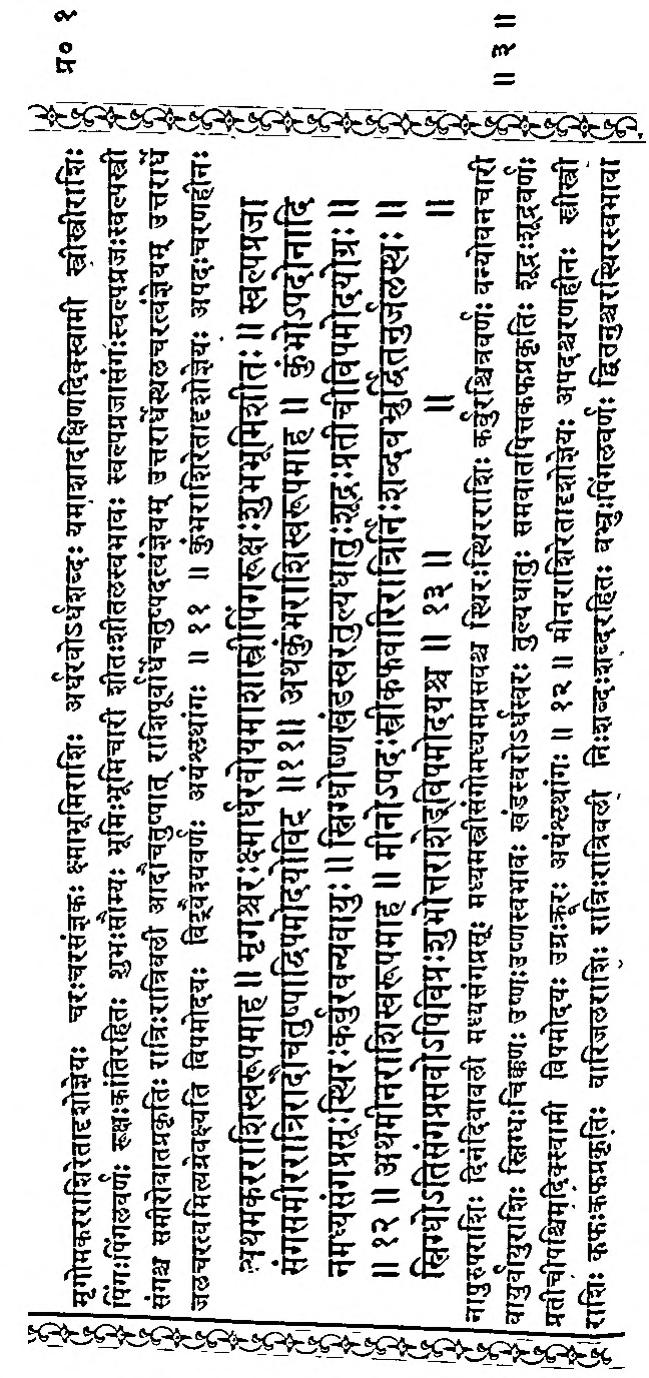 मृगोमकरराशिरेतादृशोज्ञेयः चरःचरसंज्ञकः क्ष्माभूमिराशिः अर्धरवोऽर्धशब्दः यमाशादक्षिणदिक्स्वामी स्त्रीस्त्रीराशिः
पिंगःपिंगलवर्णः रूक्षःकांतिरहितः शुभःसौम्यः भूमिःभूमिचारी शीतःशीतलस्वभावः स्वल्पप्रजासंगःस्वल्पप्रजःस्वल्पस्त्री
संगश्च समीरोवातप्रकृतिः रात्रिःरात्रिबली आदौचतुष्पात् राशिपूर्वार्धेचतुष्पदत्वंज्ञेयम् उत्तरार्धेस्थलचरत्वंज्ञेयम् उत्तरार्धे
जलचरत्वमित्यग्रेवक्ष्यति विषमोदयः विट्वैश्यवर्णः अयंश्लथांगः ॥ ११ ॥ कुंभराशिरेतादृशोज्ञेयः अपदःचरणहीनः
अथमकरराशिस्वरूपमाह ॥ मृगश्चरःक्ष्मार्धरवोयमाशास्त्रीपिंगरूक्षःशुभभूमिशीतः ॥ स्वल्पप्रजा
संगसमीररात्रिरादौचतुष्पाद्विषमोदयोविट् ॥११॥ अथकुंभराशिस्वरूपमाह ॥ कुंभोऽपदोनादि
नमध्यसंगप्रसूःस्थिरःकर्बुरवन्यवायुः ॥ स्निग्धोष्णखंडस्वरतुल्यधातुःशूद्रःप्रतीचीविषमोदयोग्रः ॥
॥ १२ ॥ अथमीनराशिस्वरूपमाह ॥ मीनोऽपदःस्त्रीकफवारिरात्रिनिःशब्दबभ्रुर्द्वितनुर्जलस्थः ॥
स्निग्धोऽतिसंगप्रसवोऽपिविप्रःशुभोत्तराशेड्विषमोदयश्च ॥ १३ ॥ ॥ ॥
नापुरुषराशिः दिनंदिवाबली मध्यसंगप्रसूः मध्यमस्त्रीसंगोमध्यमप्रसवश्च स्थिरःस्थिरराशिः कर्बुरश्चित्रवर्णः वन्योवनचारी
वायुर्वायुराशिः स्निग्धःचिक्कणः उष्णःउष्णस्वभावः खंडस्वरोऽर्धस्वरः तुल्यधातुः समवातपित्तकफप्रकृतिः शूद्रःशूद्रवर्णः
प्रतीचीपश्चिमदिक्स्वामी विषमोदयः उग्रःक्रूरः अयंश्लथांगः ॥ १२ ॥ मीनराशिरेतादृशोज्ञेयः अपदश्चरणहीनः स्त्रीस्त्री
राशिः कफःकफप्रकृतिः वारिजलराशिः रात्रिःरात्रिबली निःशब्दःशब्दरहितः बभ्रुःपिंगलवर्णः द्वितनुश्चरस्थिरस्वभावा
प्र० १
॥ ३ ॥